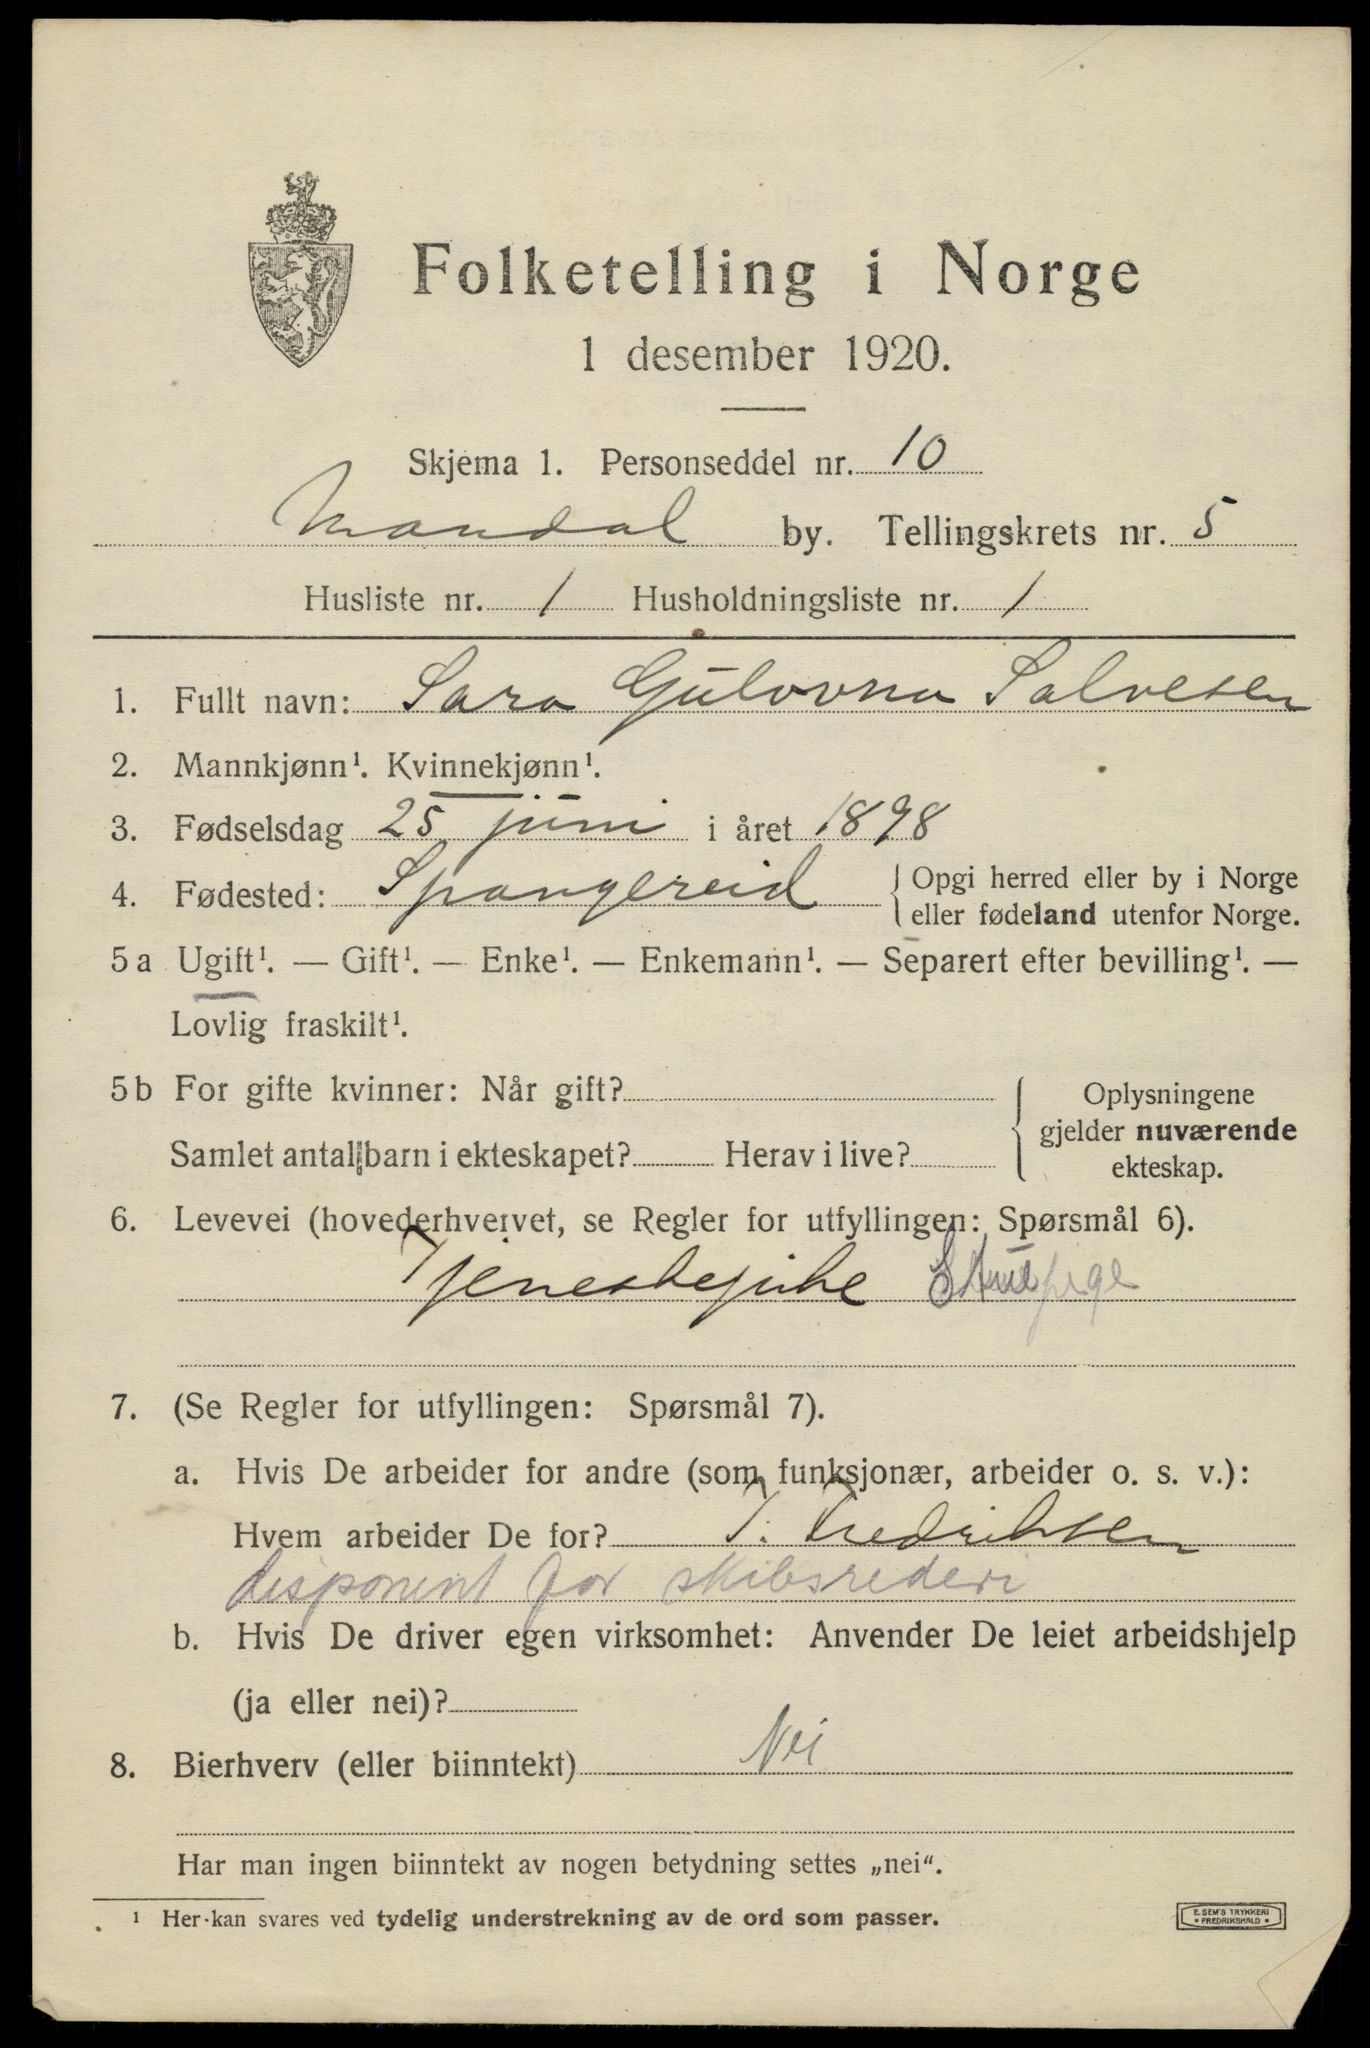 Folketelling i Norge
1 desember 1920.
Skjema 1. Personseddel nr. 10
Mandal by. Tellingskrets nr. 5
Husliste nr. 1 Husholdningsliste nr. 1
1. Fullt navn: Sara Gülovna Salvesen
2. Mannkjønn¹. Kvinnekjønn¹.
3. Fødselsdag 25 jüni i året 1898
4. Fødested: Spangereid
{ Opgi herred eller by i Norge
eller fødeland utenfor Norge.
5a Ugift¹. — Gift¹. — Enke¹. — Enkemann¹. — Separert efter bevilling¹. —
Lovlig fraskilt¹.
5b For gifte kvinner: Når gift?
Samlet antal barn i ekteskapet? Herav i live?
{ Oplysningene
gjelder nuværende
ekteskap.
6. Levevei (hovederhvervet, se Regler for utfyllingen: Spørsmål 6).
Tjenestepike Stuepige
7. (Se Regler for utfyllingen: Spørsmål 7).
a. Hvis De arbeider for andre (som funksjonær, arbeider o. s. v.):
Hvem arbeider De for? T. Fredriksen
disponent for skibsrederi
b. Hvis De driver egen virksomhet: Anvender De leiet arbeidshjelp
(ja eller nei)?
8. Bierhverv (eller biinntekt) Nei
Har man ingen biinntekt av nogen betydning settes „nei“.
¹ Her kan svares ved tydelig understrekning av de ord som passer.
E. SEM'S TRYKKERI
FREDRIKSHALD